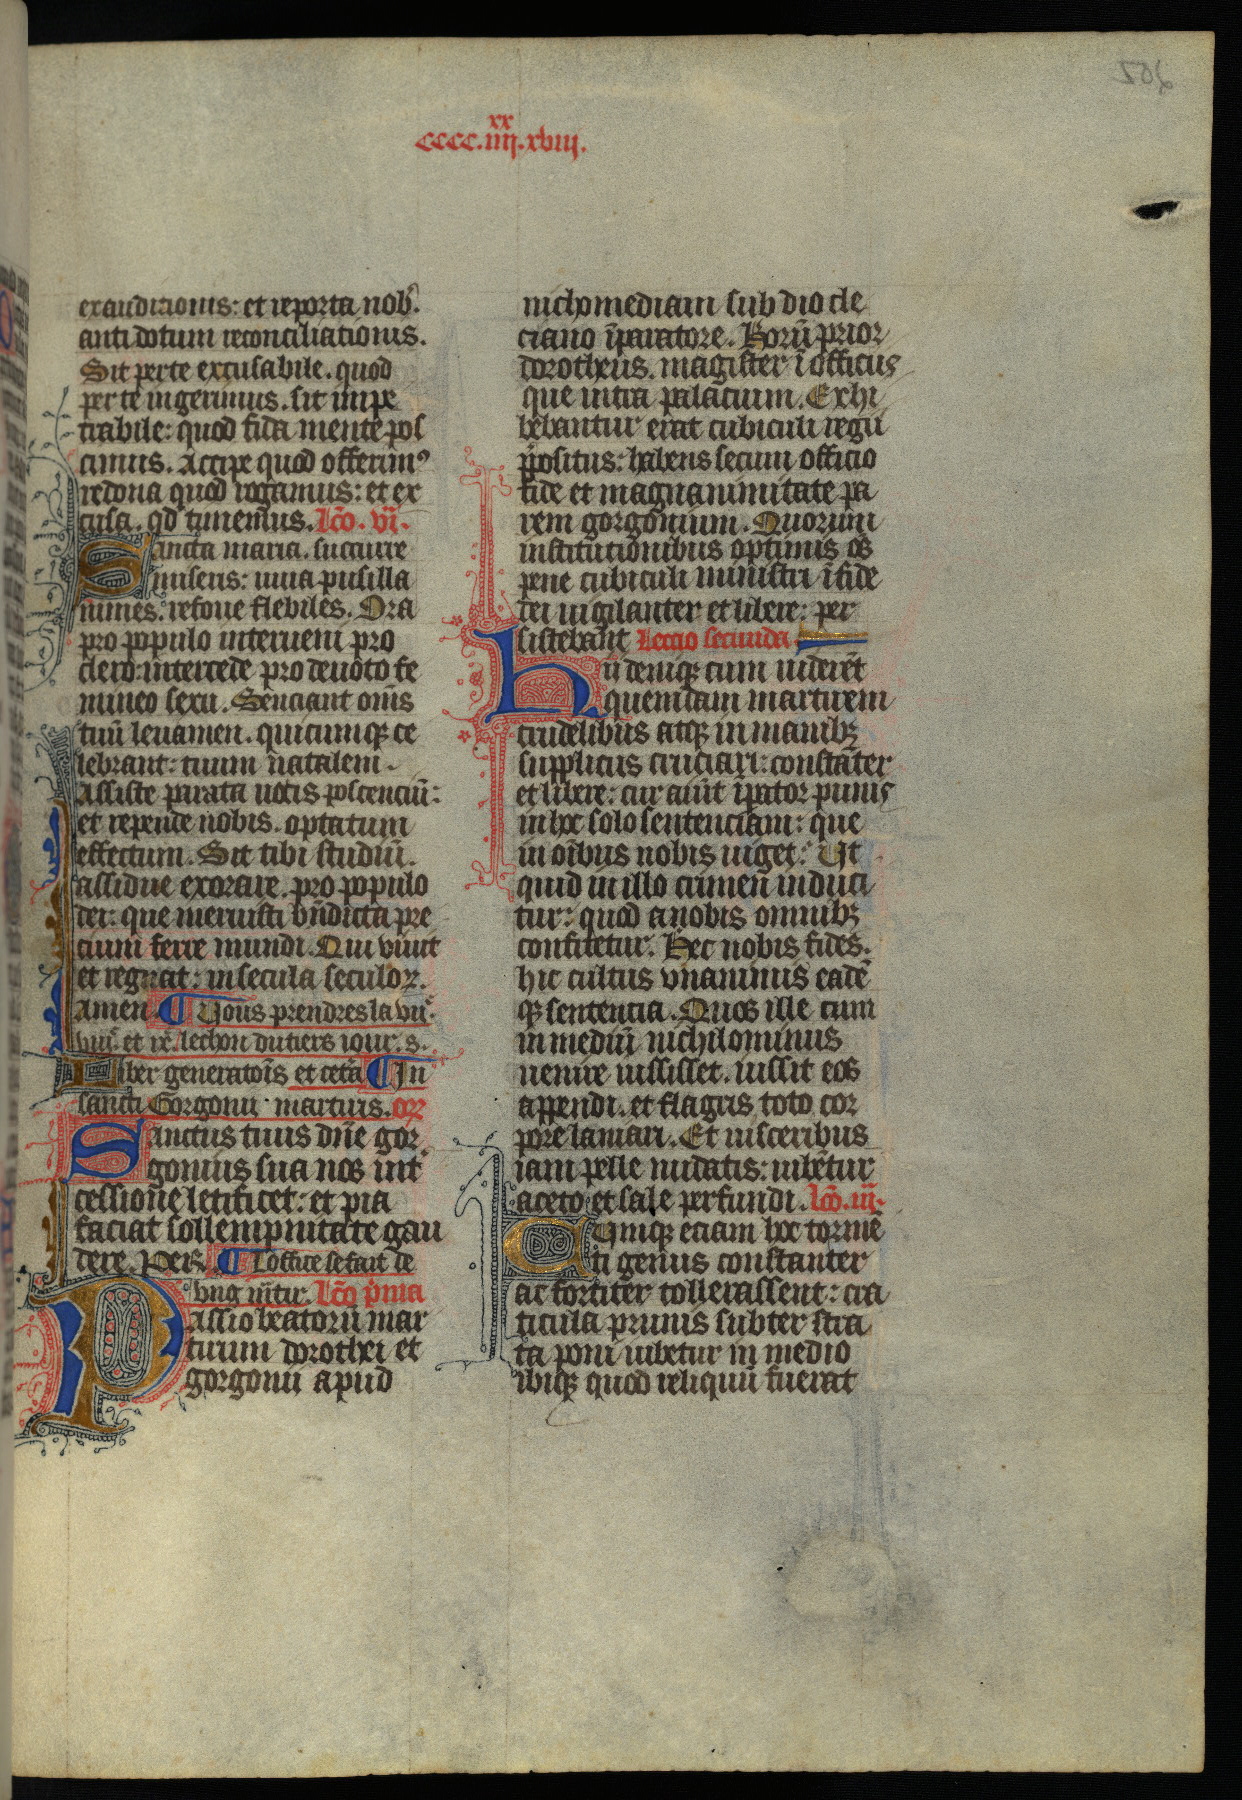 xx
cccc.iiij.xviij.
exauditionis: et reporta nob̾.
antidotum reconciliationis.
Sit per te excusabile. quod
per te ingerimus. fit impe
trabile: quod fida mente pos
cimus. Accipe quod offerimꝰ
redona quod rogamus: et ex
cusa. qd̄ timemus. Lc̄o. vi.
Sancta maria. succurre
miseris: iuua pusilla
nimes. refoue flebiles. Ora
pro populo interueni pro
clero: intercede pro deuoto fe
mineo sexu. Senciant om̄s
tuū leuamen. quicumqꝫ ce
lebrant: tuum natalem.
Assiste parata uotis poscenciū:
et repende nobis. optatum
effectum. Sit tibi studiū.
assidue exorare. pro populo
dei: que meruisti bn̄dicta pre
cium ferre mundi. Qui viuit
et regnat: in secula seculoꝝ.
Amen. ¶ Vous prendres la vii.
viii. et ix. lechon du tiers iour. s.
Liber generatōis et cetā ¶ In
sancti Gorgonii martiris. orꝫ
Sanctus tuus dn̄e gor
gonius sua nos int̾
cessione letificet: et pia
faciat sollempnitate gau
dere. Per. ¶ Loffice se fait de
vng mr̄tir. Lc̄o p̄ma
Passio beatorū mar
tirum dorothei et
gorgonii apud
nichomediam sub diocle
ciano īparatore. Horū prior
dorotheus. magister ī officiis
que intra palacium. Exhi
bebantur erat cubiculi regii
p̄positus: habens secum officio
fide et magnanimitate pa
rem gorgonium. Quorum
institutionibus optimis os
pene cubiculi ministri ī fide
dei uigilanter et libere: per
sistebant Leccio secunda
hii deniqꝫ cum uiderēt
quemdam martirem
crudelibus atqꝫ in manibꝫ
suppliciis cruciari: constāter
et libere: cur aiūt īpator punis
in hoc solo sentenciam: que
in oībus nobis uiget: Ut
quid in illo crimen induci
tur: quod a nobis omnibꝫ
confitetur. Hec nobis fides.
hic cultus vnanimis eadē
qꝫ sentencia. Quos ille cum
in mediū nichilominus
uenire iussisset. iussit eos
appendi. et flagris toto cor
pore laniari. Et uisceribus
iam pelle nudatis: iubētur
aceto et sale perfundi. lc̄o. iii.
Cumqꝫ etiam hoc tormē
ti genus constanter
ac fortiter tollerassent: cra
ticula prunis subter stra
ta poni iubetur in medio
ibiqꝫ quod reliquū fuerat